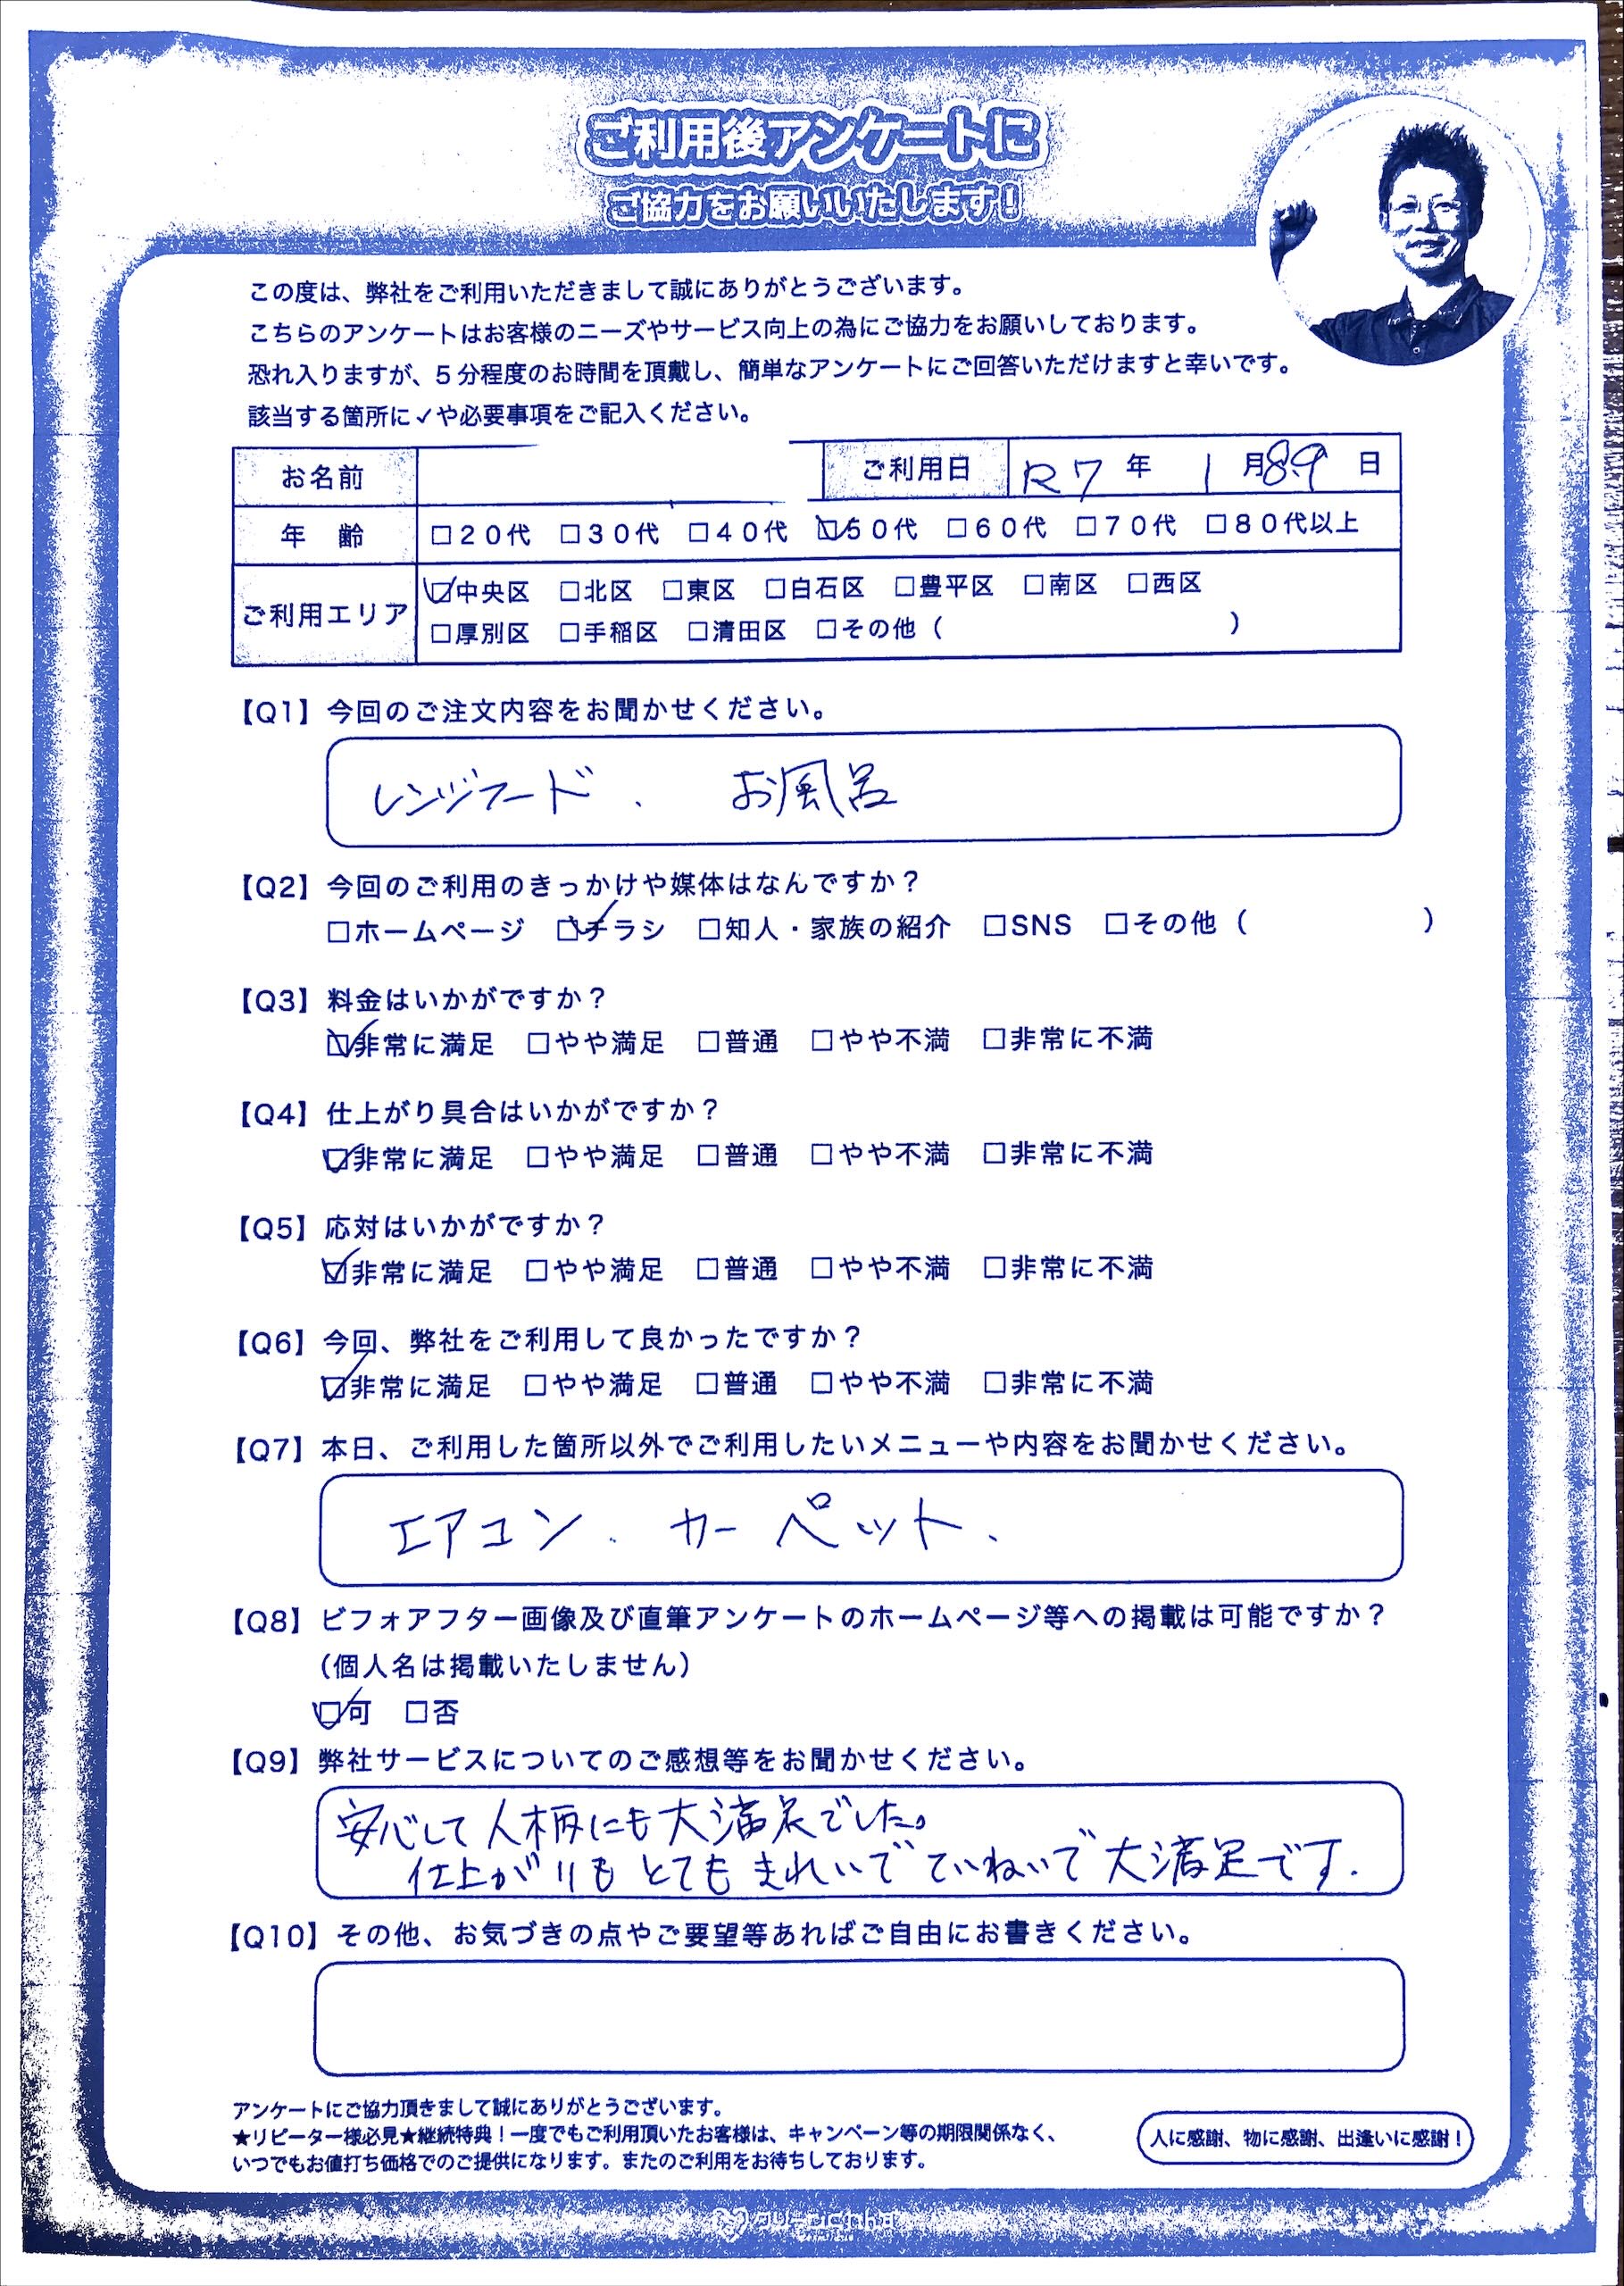 ご利用後アンケートに
ご協力をお願いいたします！
この度は、弊社をご利用いただきまして誠にありがとうございます。
こちらのアンケートはお客様のニーズやサービス向上の為にご協力をお願いしております。
恐れ入りますが、5分程度のお時間を頂戴し、簡単なアンケートにご回答いただけますと幸いです。
該当する箇所に✓や必要事項をご記入ください。
お名前 ご利用日 R7年 1月89日
年 齢 □20代 □30代 □40代 ☑50代 □60代 □70代 □80代以上
ご利用エリア ☑中央区 □北区 □東区 □白石区 □豊平区 □南区 □西区
□厚別区 □手稲区 □清田区 □その他（ ）
【Q1】今回のご注文内容をお聞かせください。
レンジフード、 お風呂
【Q2】今回のご利用のきっかけや媒体はなんですか？
□ホームページ ☑チラシ □知人・家族の紹介 □SNS □その他（ ）
【Q3】料金はいかがですか？
☑非常に満足 □やや満足 □普通 □やや不満 □非常に不満
【Q4】仕上がり具合はいかがですか？
☑非常に満足 □やや満足 □普通 □やや不満 □非常に不満
【Q5】応対はいかがですか？
☑非常に満足 □やや満足 □普通 □やや不満 □非常に不満
【Q6】今回、弊社をご利用して良かったですか？
☑非常に満足 □やや満足 □普通 □やや不満 □非常に不満
【Q7】本日、ご利用した箇所以外でご利用したいメニューや内容をお聞かせください。
エアコン、カーペット、
【Q8】ビフォアフター画像及び直筆アンケートのホームページ等への掲載は可能ですか？
（個人名は掲載いたしません）
☑可 □否
【Q9】弊社サービスについてのご感想等をお聞かせください。
安心して人柄にも大満足でした。
仕上がりもとてもきれいでていねいで大満足です.
【Q10】その他、お気づきの点やご要望等あればご自由にお書きください。
アンケートにご協力頂きまして誠にありがとうございます。
★リピーター様必見★継続特典！一度でもご利用頂いたお客様は、キャンペーン等の期限関係なく、
いつでもお値打ち価格でのご提供になります。またのご利用をお待ちしております。
人に感謝、物に感謝、出逢いに感謝！